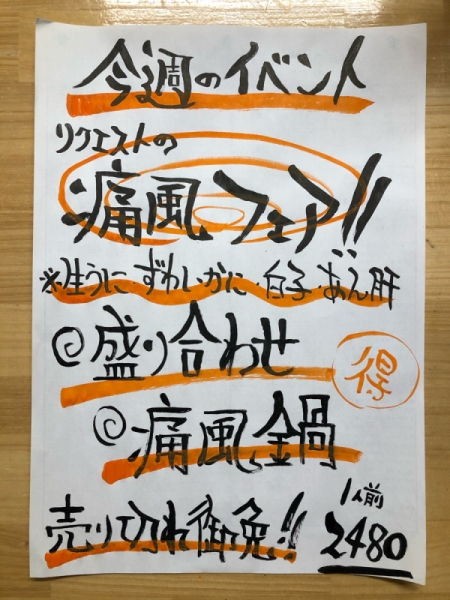 今週のイベント
リクエストの
痛風フェア!!
※生うに・ずわいがに・白子・あん肝
◎盛り合わせ
得
◎痛風鍋
1人前
売り切れ御免!!
2480